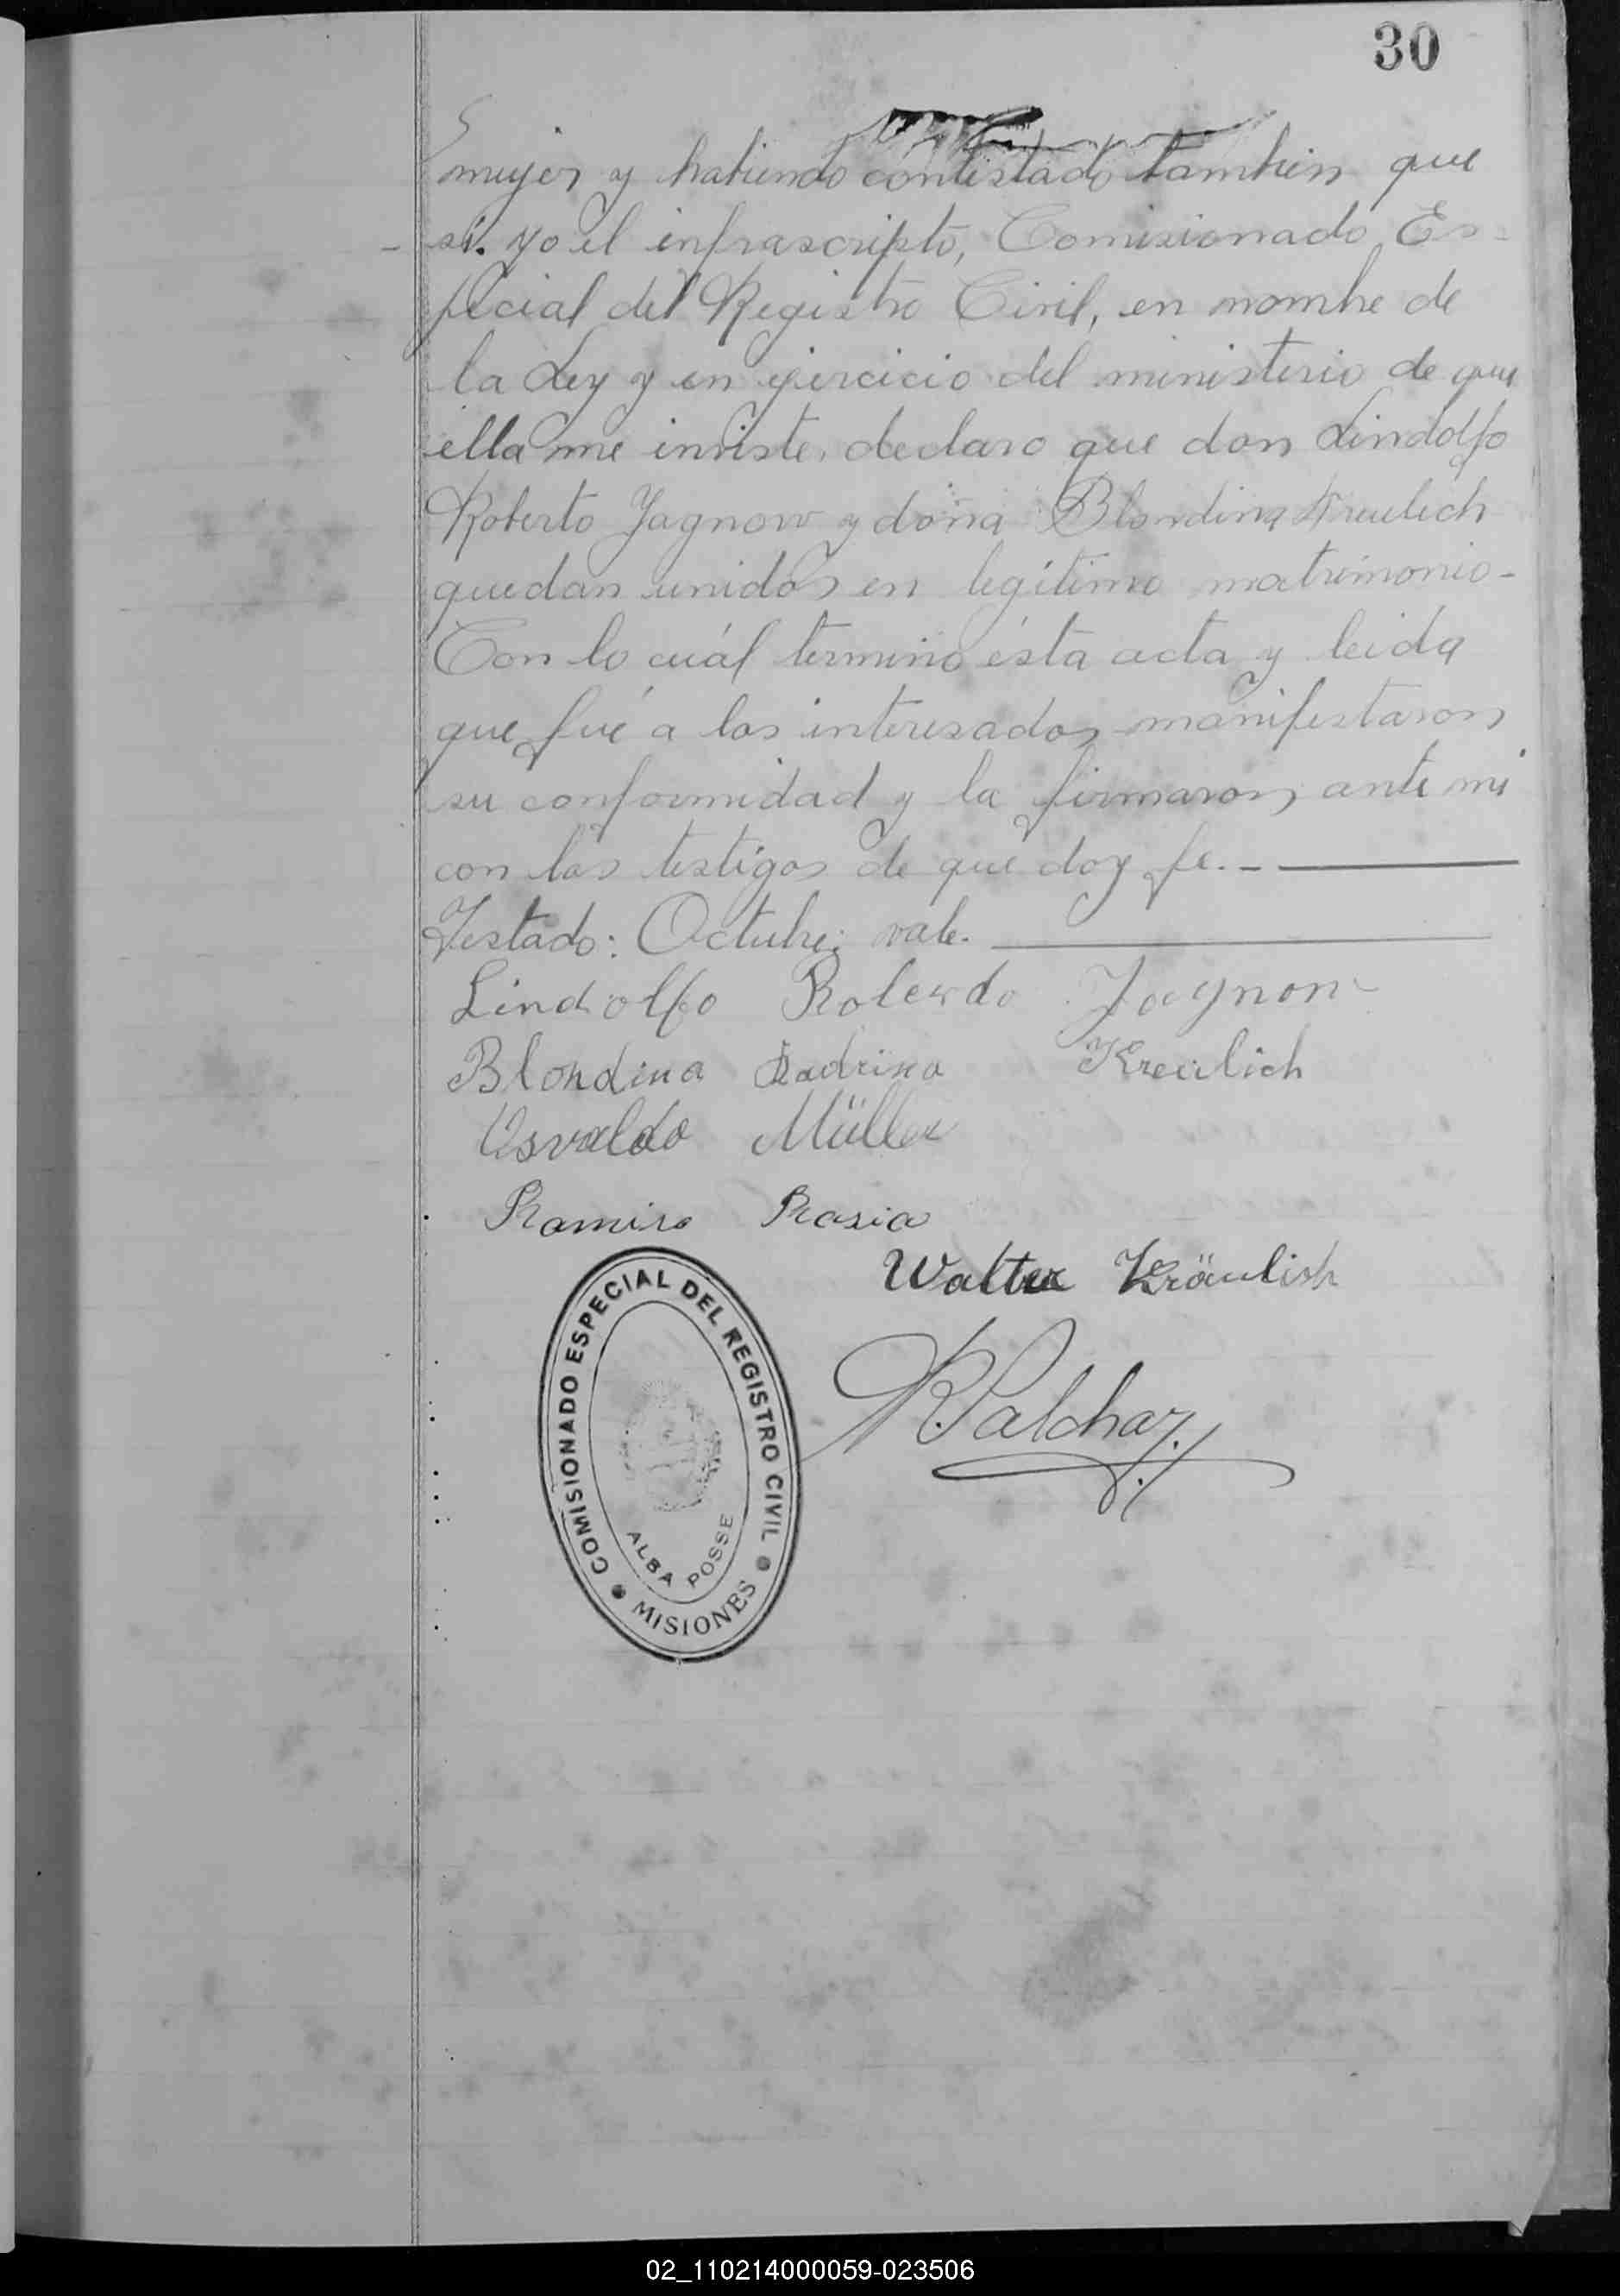 30
mujer y habiendo contestado tambien que
si. yo el infrascripto, Comisionado Es-
pecial del Registro Civil, en nombre de
la Ley y en ejercicio del ministerio de que
ella me inviste, declaro que don Lindolfo
Roberto Jagnow y doña Blondina Kreulich
quedan unidos en legítimo matrimonio-
Con lo cuál terminó ésta acta y leida
que fué a los interesados manifestaron
su conformidad y la firmaron, ante mi
con los testigos de que doy fe.-
Testado: Octubre: vale.
Lindolfo Roberdo Jagnow
Blondina Kreulich
Osvaldo Müller
Ramiro Rasia
Walter Kräulish
COMISIONADO ESPECIAL DEL REGISTRO CIVIL
ALBA POSSE
MISIONES
02_110214000059-023506